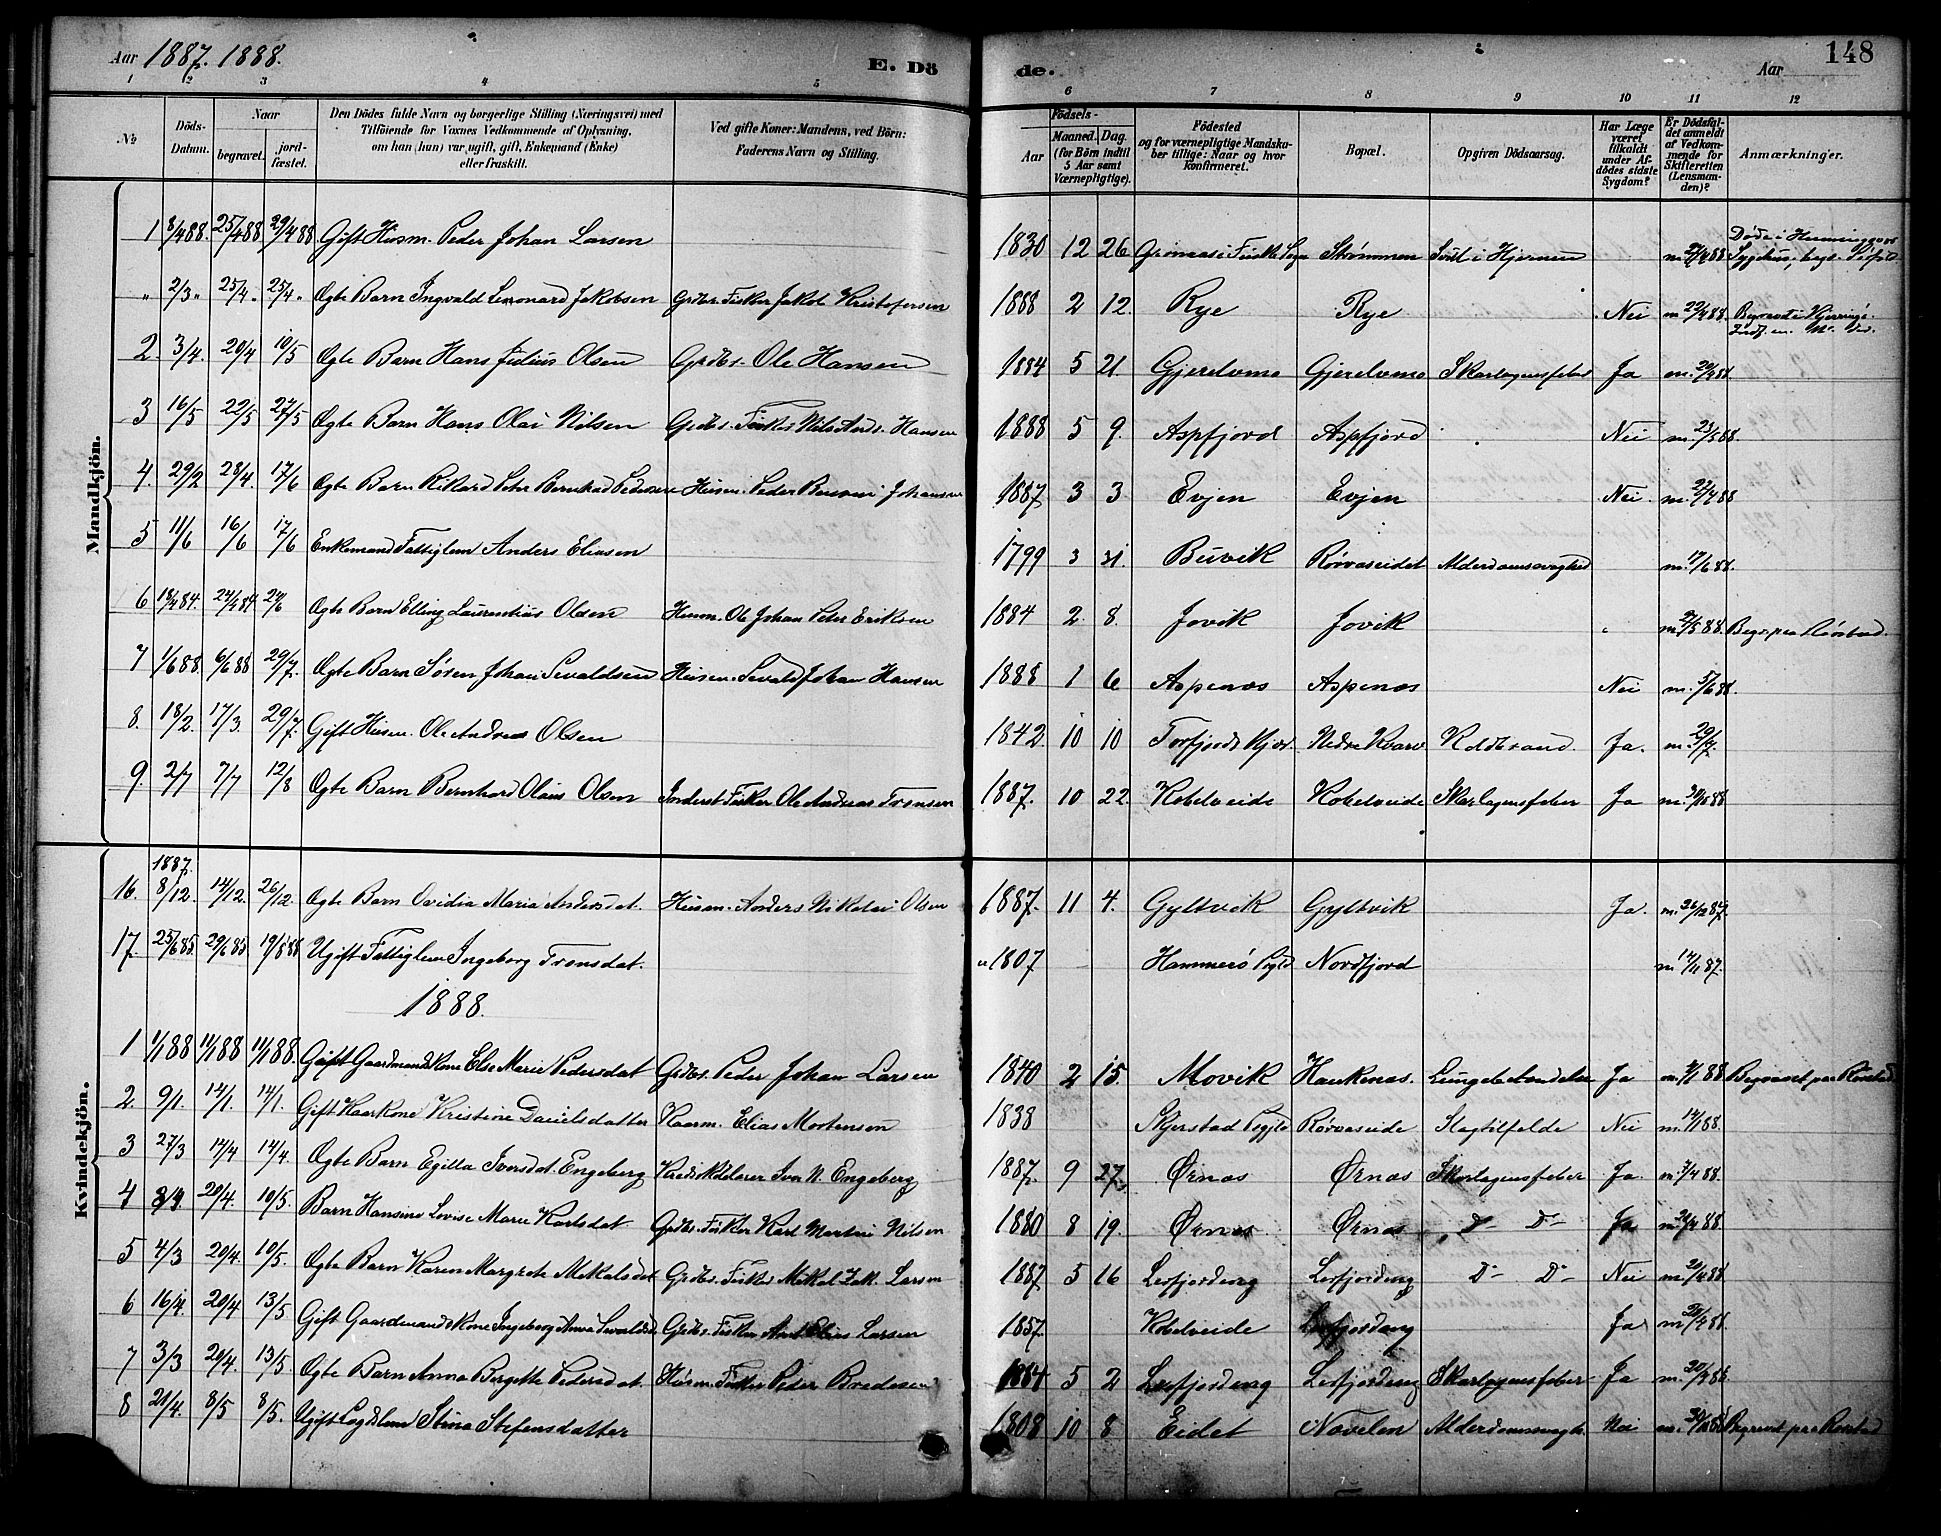 Aar 1887. 1888. E. Dö de. Aar 148
1 2 3 4 5 6 7 8 9 10 11 12
№ Döds-Datum. Naar begravet. jordfæstet. Den Dödes fulde Navn og borgerlige Stilling (Næringsvei) med Tilföiende for Voxnes Vedkommende af Oplysning, om han (hun) var ugift, gift, Enkemand (Enke) eller fraskilt. Ved gifte Koner: Mandens, ved Börn: Faderens Navn og Stilling. Födsels- Aar Maaned. Dag. (for Börn indtil 5 Aar samt Værnepligtige). Födested og for værnepligtige Mandskaber tillige: Naar og hvor konfirmeret. Bopæl. Opgiven Dödsaarsag. Har Læge været tilkaldt under Afdödes sidste Sygdom? Er Dödsfaldet anmeldt af Vedkommende for Skifteretten (Lensmanden)? Anmærkninger.
Mandkjön.
1 8/4 88. 25/4 88 29/4 88 Gift Husm. Peder Johan Larsen 1830 12 26 Strømmen m. 88
" 2/3 " 25/4 " 25/4 " Ægte Barn Ingvald Leonard Jakobsen Grdbr. Fisker Jakob Kristofersen 1888 2 12. Rye Rye Nei m. 22/4 88. Begravet i Kjerringø
2. 3/4. 20/4 10/5 Ægte Barn Hans Julius Olsen Grdbr. Ole Hansen 1884 5 21. Gjerelvmo Gjerelvmo Skarlagensfeber Ja m. 20/4 88.
3 16/5 22/5 27/5 Ægte Barn Hans Olai Nilsen Grdbr. Fisker Nils Andr. Hansen 1888 5 9. Aspfjord Aspfjord Nei m. 23/5 88.
4. 29/2 28/4. 17/6 Ægte Barn Rikard Peter Bernhard Pedersen Husm. Peder Johansen 1887 3 3 Evjen Evjen Nei m. 27/4 88
5 11/6 16/6 17/6 Enkemand Fattiglem Anders Eliasen 1799 3 31. Buvik Rørvaseidet Alderdomssvaghed m. 17/6 88.
6 18/4 84. 24/4 84 24/6 Ægte Barn Elling Laurentius Olsen Husm. Ole Johan Peter Eriksen 1884 2 8. Jovik Jovik " m. 88. Begr. paa Rørstad
7 1/6 88. 6/6 88 29/7. Ægte Barn Søren Johan Sevaldsen Husm. Sevald Johan Hansen 1888 1 6 Aspenæs Aspenæs Nei m. 5/6 88.
8. 18/2. 17/3. 29/7. Gift Husm. Ole Andreas Olsen 1842. 10 10 Torfjord Nedre Kvarv Koldbrand. Ja. m. 29/7.
9. 2/7 7/7 12/8 Ægte Barn Bernhard Olaus Olsen Inderst Fisker Ole Andreas Tronsen 1887. 10 22. Kobelveide Kobelveide Skarlagensfeber Ja m. 88.
Kvindekjön.
1887.
16. 8/12. 14/12. 26/12. Ægte Barn Ovidia Maria Andersdat. Husm. Anders Nikolai Olsen 1887. 11 4. Gyltvik Gyltvik Ja. m. 26/12 87.
17. 25/6 85. 29/6 85 19/8 88 Ugift Fattiglem Ingeborg Tronsdat. 1807 Hammerø Prgld Nordfjord m. 14/11 87.
1888.
1 1/1 88 11/1 88 11/1 88. Gift Gaardmandskone Else Marie Pedersdat Grdbr. Peder Johan Larsen 1840 2 15. Movik Haukenæs. Lungebetændelse Ja m. 88 Begravet paa Rørstad
2. 9/1. 14/1. 14/1. Gift Kaarkone Kristine Danielsdatter Kaarm. Elias Mortensen 1838 Skjerstad Prgld Rørvaseide Slagtilfelde Nei m. 14/1 88.
3 27/3 14/4 14/4 Ægte Barn Egilla Iversdat. Engeberg Iver N. Engeberg 1887. 9 27. Ørnæs Ørnæs Skarlagensfeber Ja. m. 7/4 88.
4 8/4 20/4. 10/5. Barn Hansine Lovise Marie Karlsdat Grdbr. Fisker Karl Martin Nilsen 1880 8 19. Ørnæs Ørnæs D- D- Ja m. 20/4 88.
5 4/3 20/4. 10/5. Ægte Barn Karen Margrete Mikalsdat Grdbr. Fisker Mikal Zak. Larsen 1887 5 16 Lerfjordeng Lerfjordeng D- D- Nei m. 20/4 88.
6 16/4 20/4 13/5 Gift Gaardmandskone Ingeborg Anna Sevaldsd Grdbr. Fisker Elias Larsen 1857. Kobelveide Lerfjordeng Ja m. 20/4 88.
7 3/3 20/4. 13/5. Ægte Barn Anna Bergitte Pedersdat. Husm. Fisker Peder Bredesen 1884 5. 2 Lerfjordeng Lerfjordeng Skarlagensfeber Ja m. 20/4 88.
8 21/4. 8/5 8/5. Ugift Lægdslem Stina Stefensdatter 1808 10 8 Eidet Novelen Alderdomssvagh. Nei m. 88 Begravet paa Rørstad